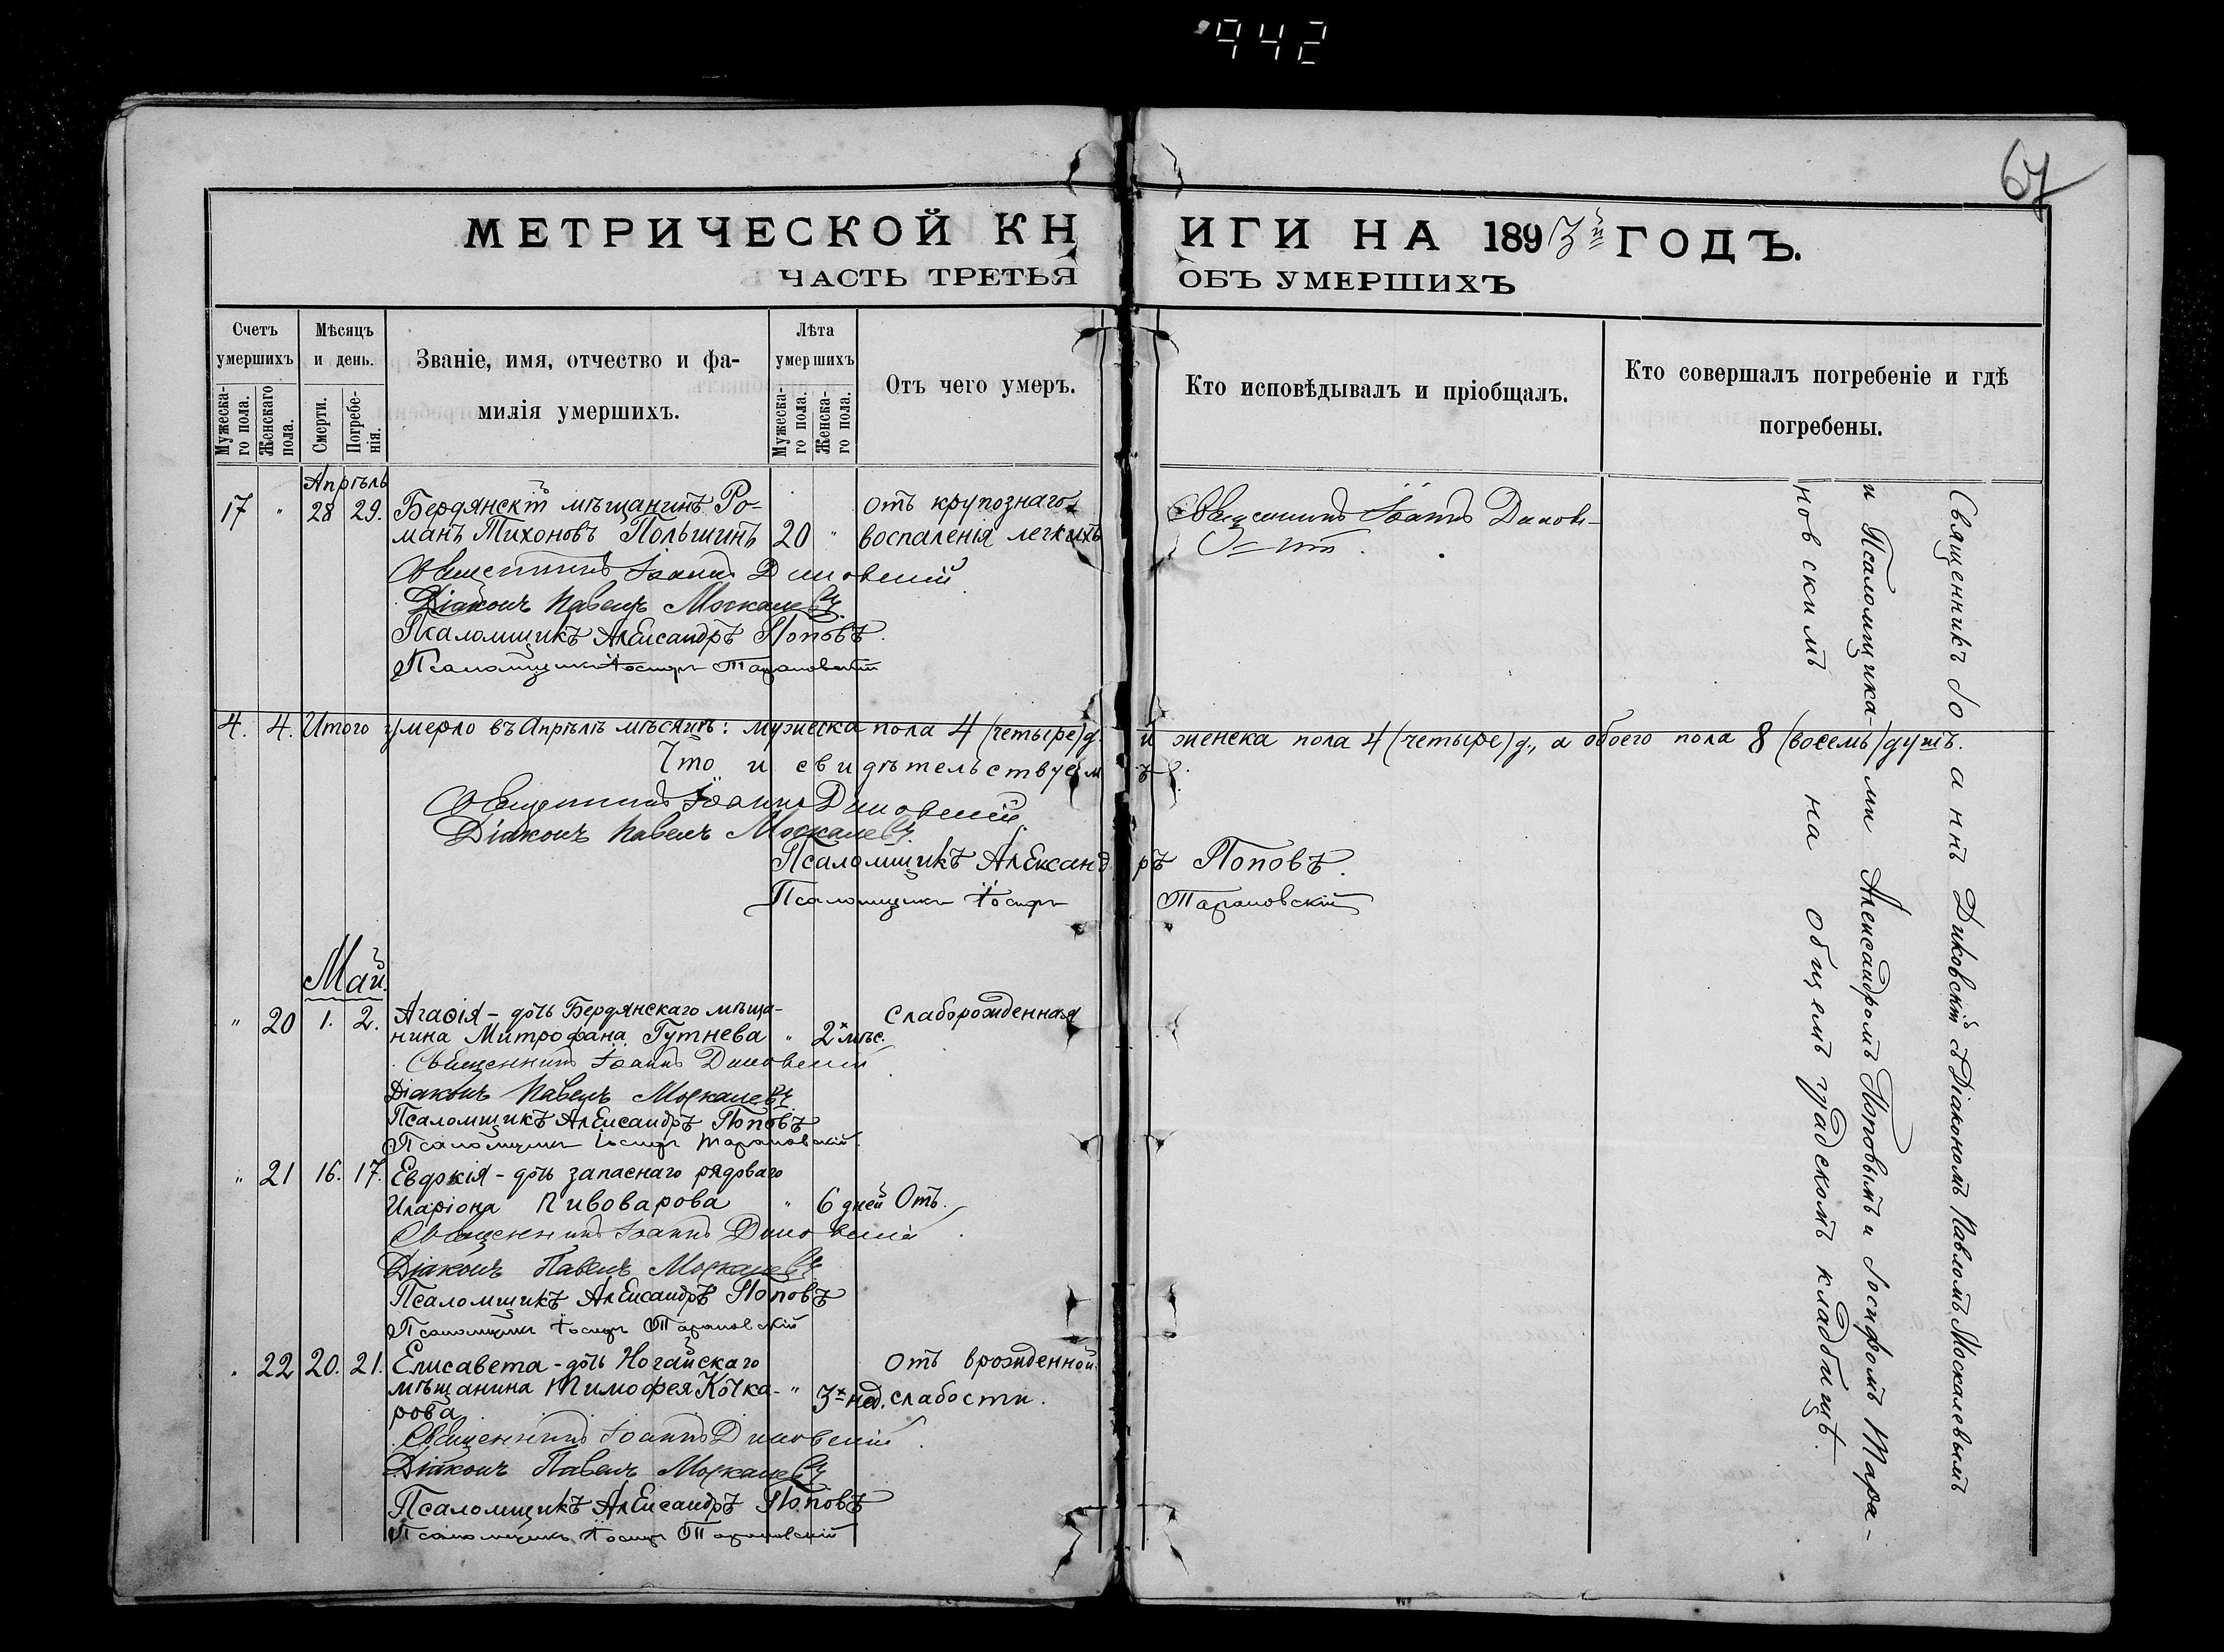 942
67
МЕТРИЧЕСКОЙ КНИГИ НА 1893й ГОДЪ.
ЧАСТЬ ТРЕТЬЯ ОБЪ УМЕРШИХЪ
Счетъ умершихъ
Мужеска-го пола.
Женскаго пола.
Мѣсяцъ и день.
Смерти.
Погребе-нія.
Званіе, имя, отчество и фа-
милія умершихъ.
Лѣта умершихъ
Мужеска-го пола.
Женска-го пола.
Отъ чего умеръ.
Кто исповѣдывалъ и пріобщалъ.
Кто совершалъ погребеніе и гдѣ
погребены.
Апрѣль
17 " 28 29. Бердянскій мѣщанинъ Ро- отъ крупознаго Священникъ Іоаннъ Диков-
манъ Тихоновъ Польшинъ 20 " воспаленія легкихъ
Священникъ Іоаннъ Диковскій
Діаконъ Павелъ Москалевъ
Псаломщикъ Александръ Поповъ.
Псаломщикъ Іосифъ Тарановскій
4. 4. Итого умерло въ Апрѣлѣ мѣсяцѣ: мужеска пола 4 (четыре) д. и женска пола 4 (четыре) д., а обоего пола 8 (восемь) душъ.
Что и свидѣтельствуемъ:
Священникъ Іоаннъ Диковскій.
Діаконъ Павелъ Москалевъ
Псаломщикъ Александръ Поповъ.
Псаломщикъ Іосифъ Тарановскій
Май.
" 20 1. 2. Агаѳія - дочь Бердянскаго мѣща- Слаборожденная
нина Митрофана Гутнева " 2х мѣс.
Священникъ Іоаннъ Диковскій
Діаконъ Павелъ Москалевъ
Псаломщикъ Александръ Поповъ
Псаломщикъ Іосифъ Тарановскій.
" 21 16. 17. Евдокія - дочь запаснаго рядоваго
Иларіона Пивоварова " 6 дней Отъ.
Священникъ Іоаннъ Диковскій
Діаконъ Павелъ Москалевъ
Псаломщикъ Александръ Поповъ
Псаломщикъ Іосифъ Тарановскій
" 22 20. 21. Елисавета - дочь Ногайскаго Отъ врожденной
мѣщанина Тимофея Кочка- " 3х нед. слабости.
рова
Священникъ Іоаннъ Диковскій.
Діаконъ Павелъ Москалевъ
Псаломщикъ Александръ Поповъ
Псаломщикъ Іосифъ Тарановскій
Священникъ Іоаннъ Диковскій съ Діакономъ Павломъ Москалевымъ
и Псаломщика-ми Александромъ Поповымъ и Іосифомъ Тара-
новскимъ на общемъ градскомъ кладбищѣ.